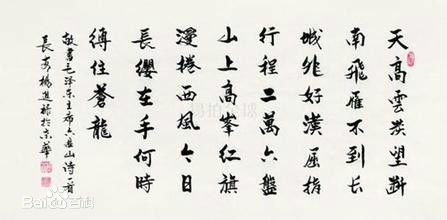 天高雲淡望斷
南飛雁不到長
城非好漢屈指
行程二萬六盤
山上高峯紅旗
漫捲西風今日
長纓在手何時
縛住蒼龍
敬書毛澤東主席六盤山詩一首
長安楊進
於京華
Bai百科